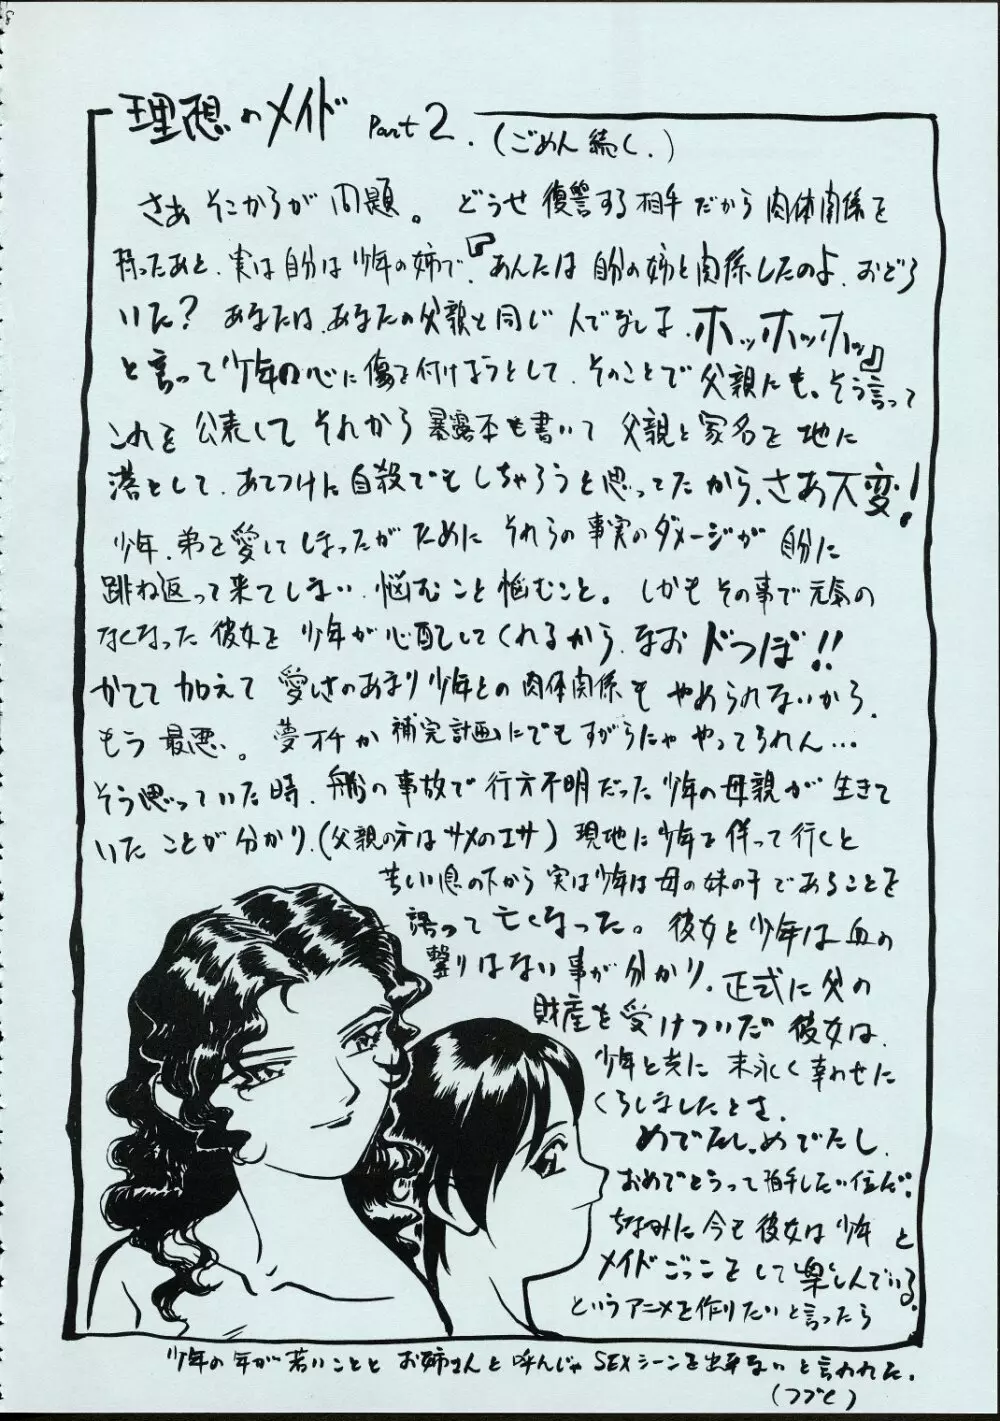 理想のメイド Part 2.(ごめん続く.)
さあ そこからが問題。どうせ復讐する相手だから肉体関係を
持ったあと、実は自分は少年の姉で、『あんたは自分の姉と関係したのよ、おどろ
いた?あなたは、あなたの父親と同じ人でなしよ、ホッホッホッ』
と言って少年の心に傷を付けようとして、そのことで父親にも。そう言って
これを公表して それから暴露本も書いて 父親と家名を地に
落として、あてつけに自殺でもしちゃろうと思ってたから、さあ大変!
少年、弟を愛してしまったがために それらの事実のダメージが 自分に
跳ね返って来てしまい、悩むこと悩むこと。しかもその事で元気の
なくなった彼女を 少年が心配してくれるから、なおドつぼ!!
かてて加えて 愛しさのあまり少年との肉体関係も やめられないから、
もう最悪。夢オチか補完計画にでもすがらにゃ やってられん…
そう思っていた時、船の事故で行方不明だった少年の母親が生きて
いたことが分かり、(父親の方はサメのエサ)現地に少年を伴って行くと
苦しい息の下から実は少年は母の妹の子であることを
語って亡くなった。彼女と少年は血の
繋りはない事が分かり、正式に父の
財産を受けついだ彼女は、
少年と共に 末永く幸わせに
くらしましたとさ.
めでたし、めでたし.
おめでとうって拍手したい位だ!
ちなみに今も彼女は少年と
メイドごっこをして楽しんでいる.
というアニメを作りたいと言ったら
少年の年が若いことと お姉さんと呼んじゃ SEXシーンを出来ないと言われた.
(つづく)